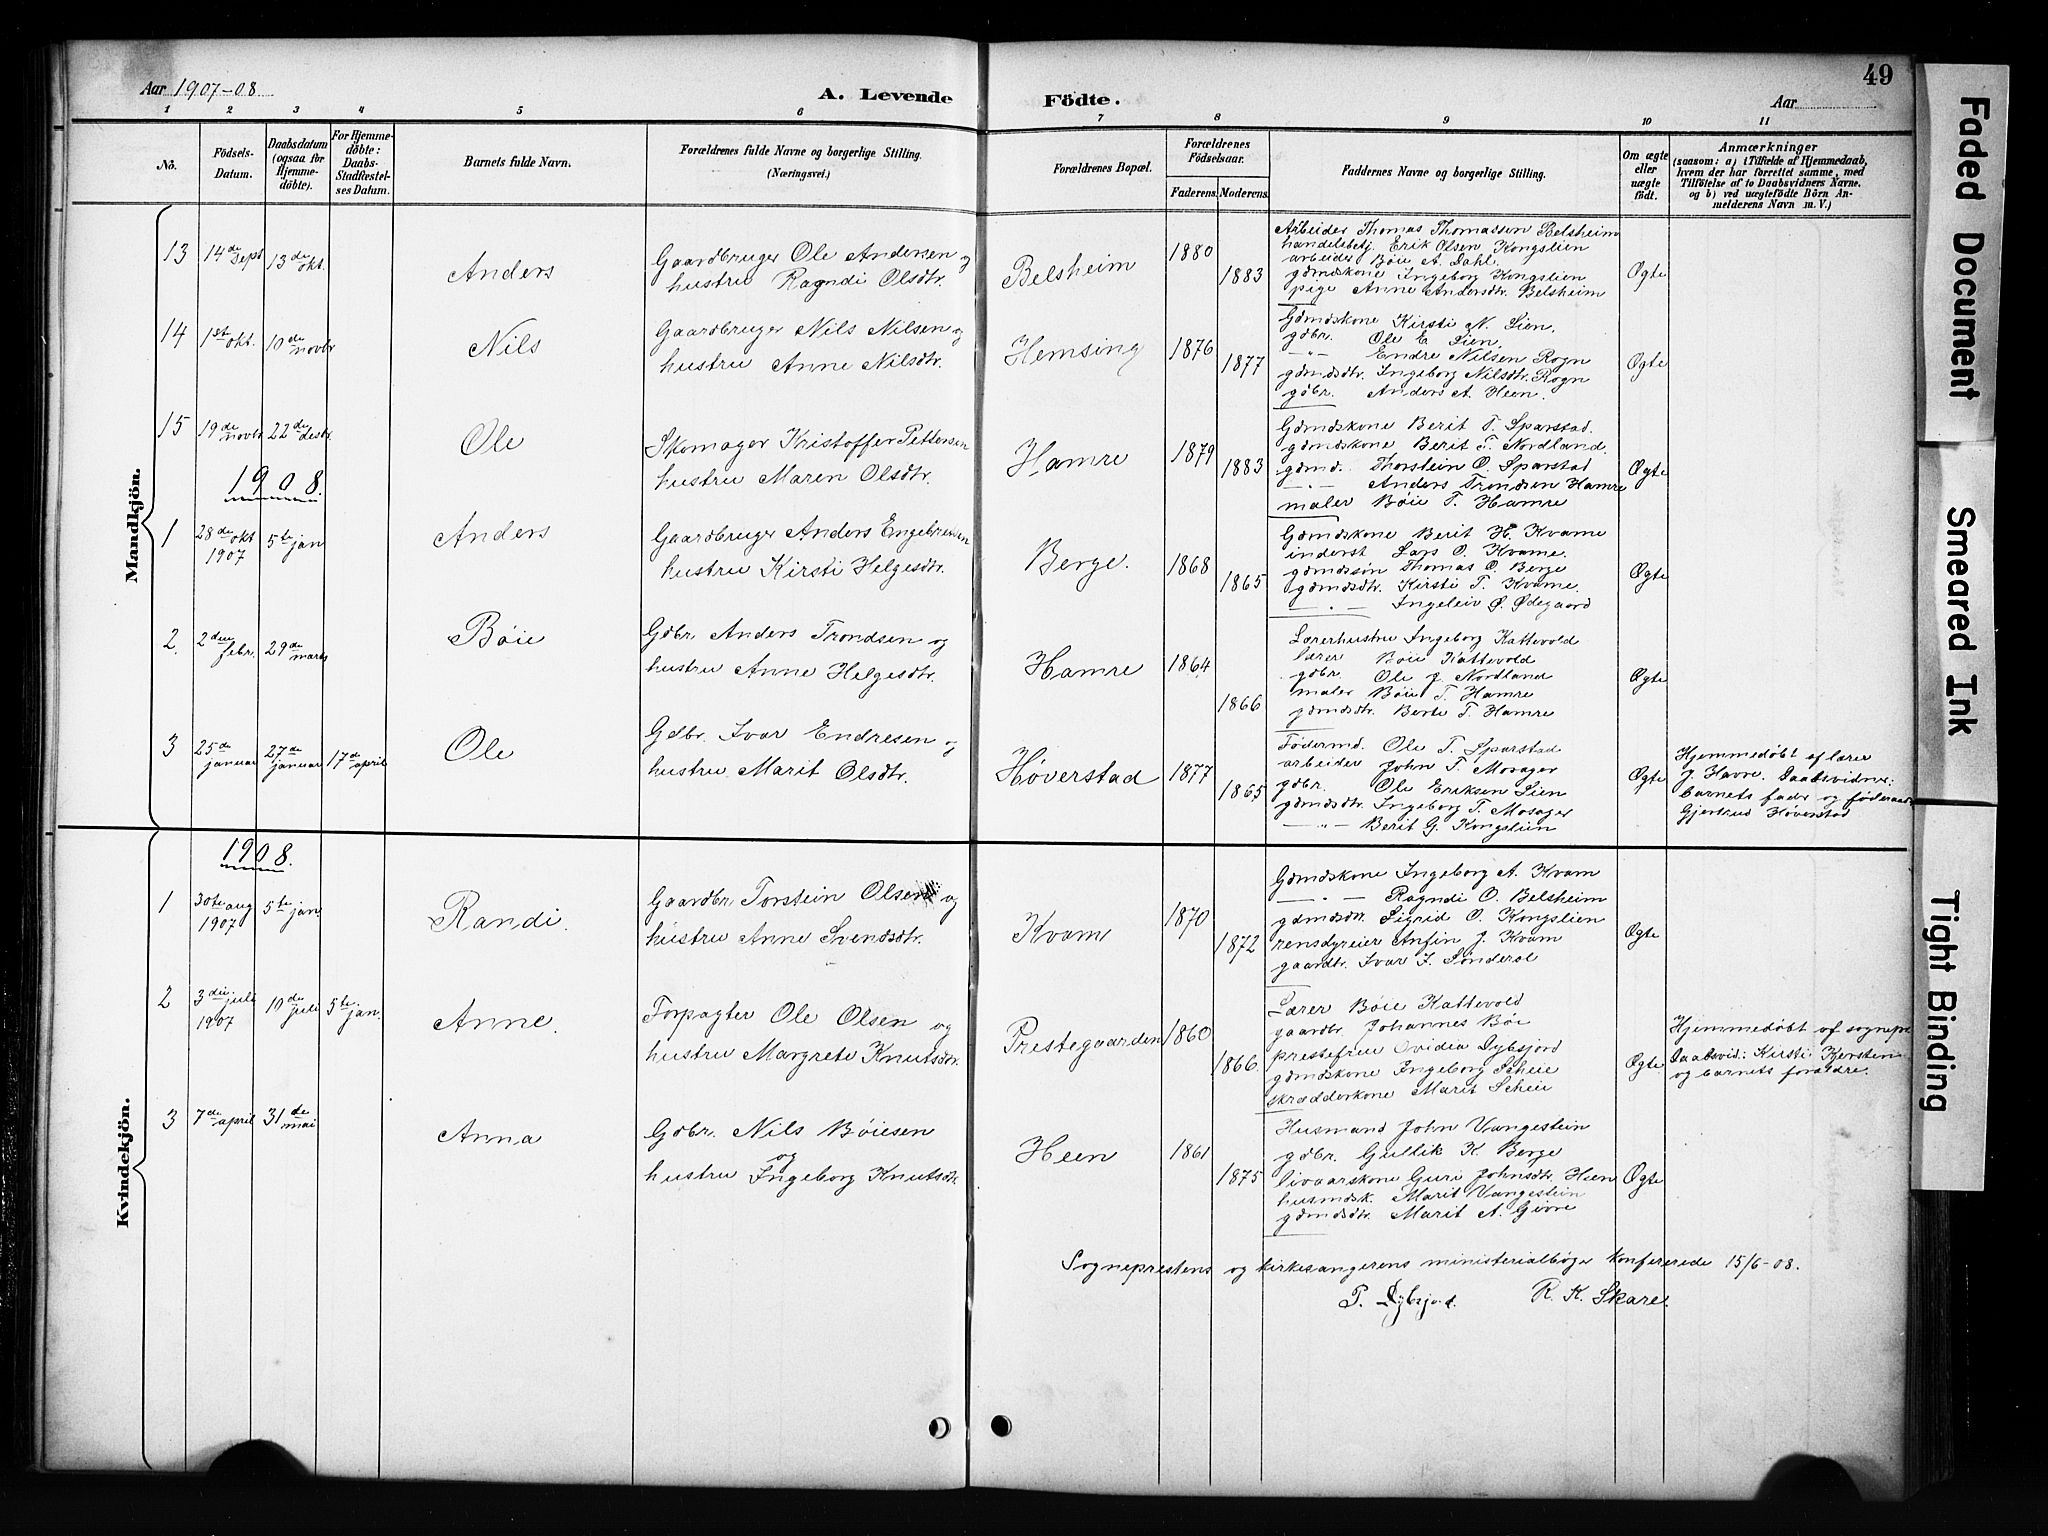 49
Aar 1907-08
A. Levende Födte.
Aar
1 2 3 4 5 6 7 8 9 10 11
No.
Födsels-Datum.
Daabsdatum (ogsaa for Hjemmedöbte).
For Hjemmedöbte: Daabs-Stadfestelses Datum.
Barnets fulde Navn.
Forældrenes fulde Navne og borgerlige Stilling. (Næringsvei.)
Forældrenes Bopæl.
Forældrenes Födselsaar.
Faderens. Moderens.
Faddernes Navne og borgerlige Stilling.
Om ægte eller uægte födt.
Anmærkninger
(saasom: a) i Tilfælde af Hjemmedaab, hvem der har forrettet samme, med Tilföielse af to Daabsvidners Navne, og b) ved uægtefödte Börn Anmelderens Navn m. V.)
Mandkjön.
13 14de sept 13de okt.
Anders
Gaardbruger Ole Andersen og
hustru Ragndi Olsdtr.
Belsheim
1880
1883
Arbeider Thomas Thomassen Belsheim
handelsbetj. Erik Olsen Kongslien
arbeider Bøie A. Dahl.
gdmdskone Ingeborg Kongslien
pige Anne Andersdtr. Belsheim
Ægte
14 1st okt. 10de novbr
Nils
Gaardbruger Nils Nilsen og
hustru Anne Nilsdtr.
Hemsing
1876
1877
Gdmdskone Kirsti N. Lien.
gdbr. Ole E. Lien.
-"- Endre Nilsen Rogn
gdmdsdtr. Ingeborg Nilsdtr. Rogn
gdbr. Anders A. Heen.
Ægte
15 19de novbr 22de desbr.
Ole
Skomager Kristoffer Pettersen
hustru Maren Olsdtr.
Hamre
1879
1883
Gdmdskone Berit T. Sparstad.
gdmdskone Berit T. Nordland.
gdmd. Thorstein O. Sparstad
-"- Anders Trondsen Hamre
maler Bøie T. Hamre
Ægte
1908.
1 28de okt 1907 5te jan
Anders
Gaardbruger Anders Engebretsen
hustru Kirsti Helgesdtr.
Berge.
1868
1865
Gdmdskone Berit H. Kvame
inderst Lars O. Kvame.
gdmdssøn Thomas O. Berge
gdmdsdtr. Kirsti T. Kvame.
-"- Ingeleiv Ø. Ødegaard
Ægte
2. 2den febr. 29de marts
Bøie
Gdbr. Anders Trondsen og
hustru Anne Helgesdtr.
Hamre
1864
1866
Lærerhustru Ingeborg Kattevold
lærer Bøie Kattevold
gdbr. Ole J. Nordland
maler Bøie T. Hamre
gdmdsdtr. Berte T. Hamre
Ægte
3 25de januar 27de januar 17de april
Ole
Gdbr. Ivar Endresen og
hustru Marit Olsdtr.
Høverstad
1877
1865
Fødermd. Ole T. Sparstad
arbeider John T. Mosager
gdbr. Ole Eriksen Lien
gdmdsdtr. Ingeborg T. Mosager
-"- Berit G. Kongslien
Ægte
Hjemmedøbt af lærer
J. Havre. Daabsvidner:
barnets fader og føderaads
Gjertrud Høverstad
Kvindekjön.
1908.
1 30te aug 1907 5te jan
Randi.
Gaardbr. Torstein Olsen og
hustru Anne Svendsdtr.
Kvame
1870
1872
Gdmdskone Ingeborg A. Kvam
-"- Ragndi O. Belsheim
gdmdsdtr. Sigrid O. Kongslien
rensdyreier Anfin J. Kvam
gaardbr. Ivar I. Sønderol
Ægte
2 3die juli 1907 10de juli 5te jan.
Anne.
Forpagter Ole Olsen og
hustru Margrete Knutsdtr.
Prestegaarden
1860
1866.
Lærer Bøie Kattevold
gaardbr. Johannes Bøe
prestefrue Ovidia Dybsjord
gdmdskone Ingeborg Scheie
skrædderkone Marit Scheie
Ægte
Hjemmedøbt af sognepr.
Daabsvid: Kirsti Kersten
og barnets forældre.
3 7de april 31de mai
Anna
Gdbr. Nils Bøiesen
og
hustru Ingeborg Knutsdtr
Heen
1861
1875
Husmand John Vangestein
gdbr. Gullik K. Berge
livaarskone Guri Johnsdtr. Heen
husmdsk. Marit Vangestein
gdmdsdtr. Marit A. Givre
Ægte
Sogneprestens og kirkesangerens ministerialbøger konfererede 15/6-08.
P. Dybsjord. R. K. Skare.
Faded Document
Smeared Ink
Tight Binding